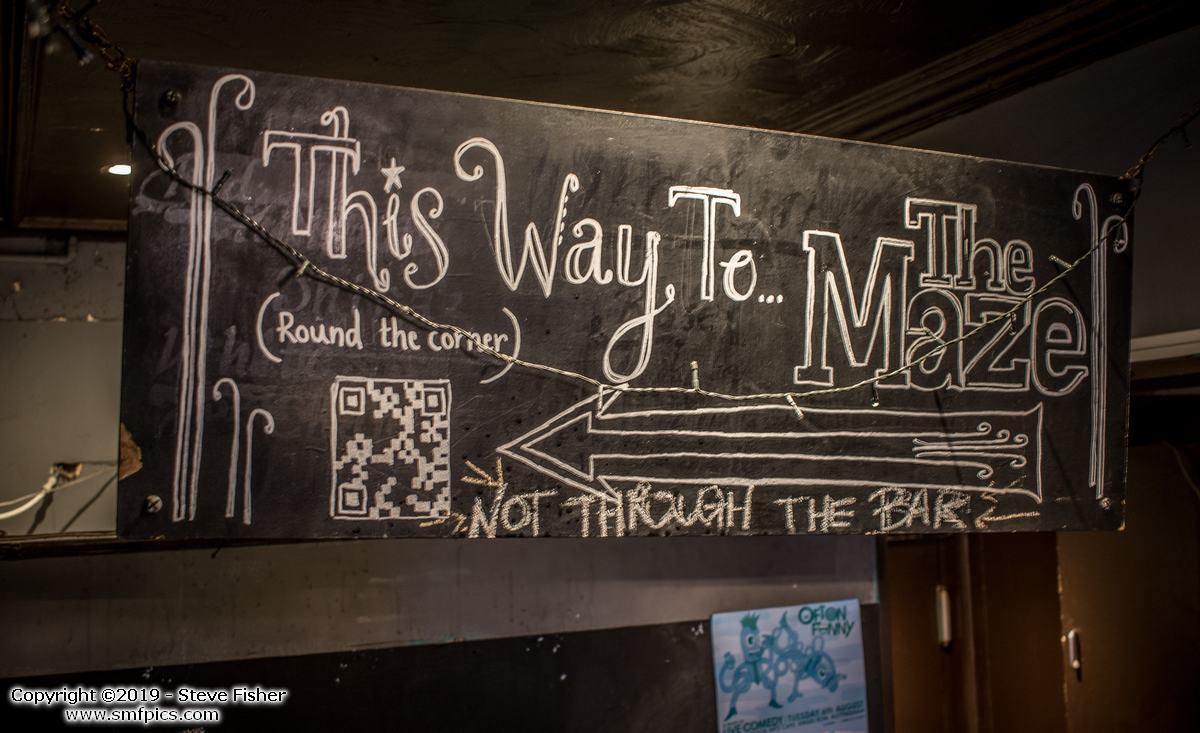 This Way To... The Maze
(Round the corner)
NOT THROUGH THE BAR
OFTON FUNNY
LIVE COMEDY: TUESDAY 6TH AUGUST
Copyright ©2019 - Steve Fisher
www.smfpics.com